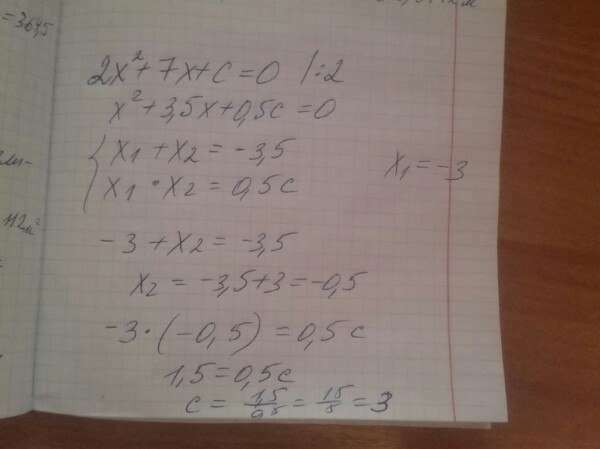 = 36,5
2x² + 7x + c = 0 |:2
x² + 3,5x + 0,5c = 0
{ x₁ + x₂ = -3,5
x₁ · x₂ = 0,5c
x₁ = -3
112м²
-3 + x₂ = -3,5
x₂ = -3,5 + 3 = -0,5
-3 · (-0,5) = 0,5c
1,5 = 0,5c
c = 1,5/0,5 = 15/5 = 3